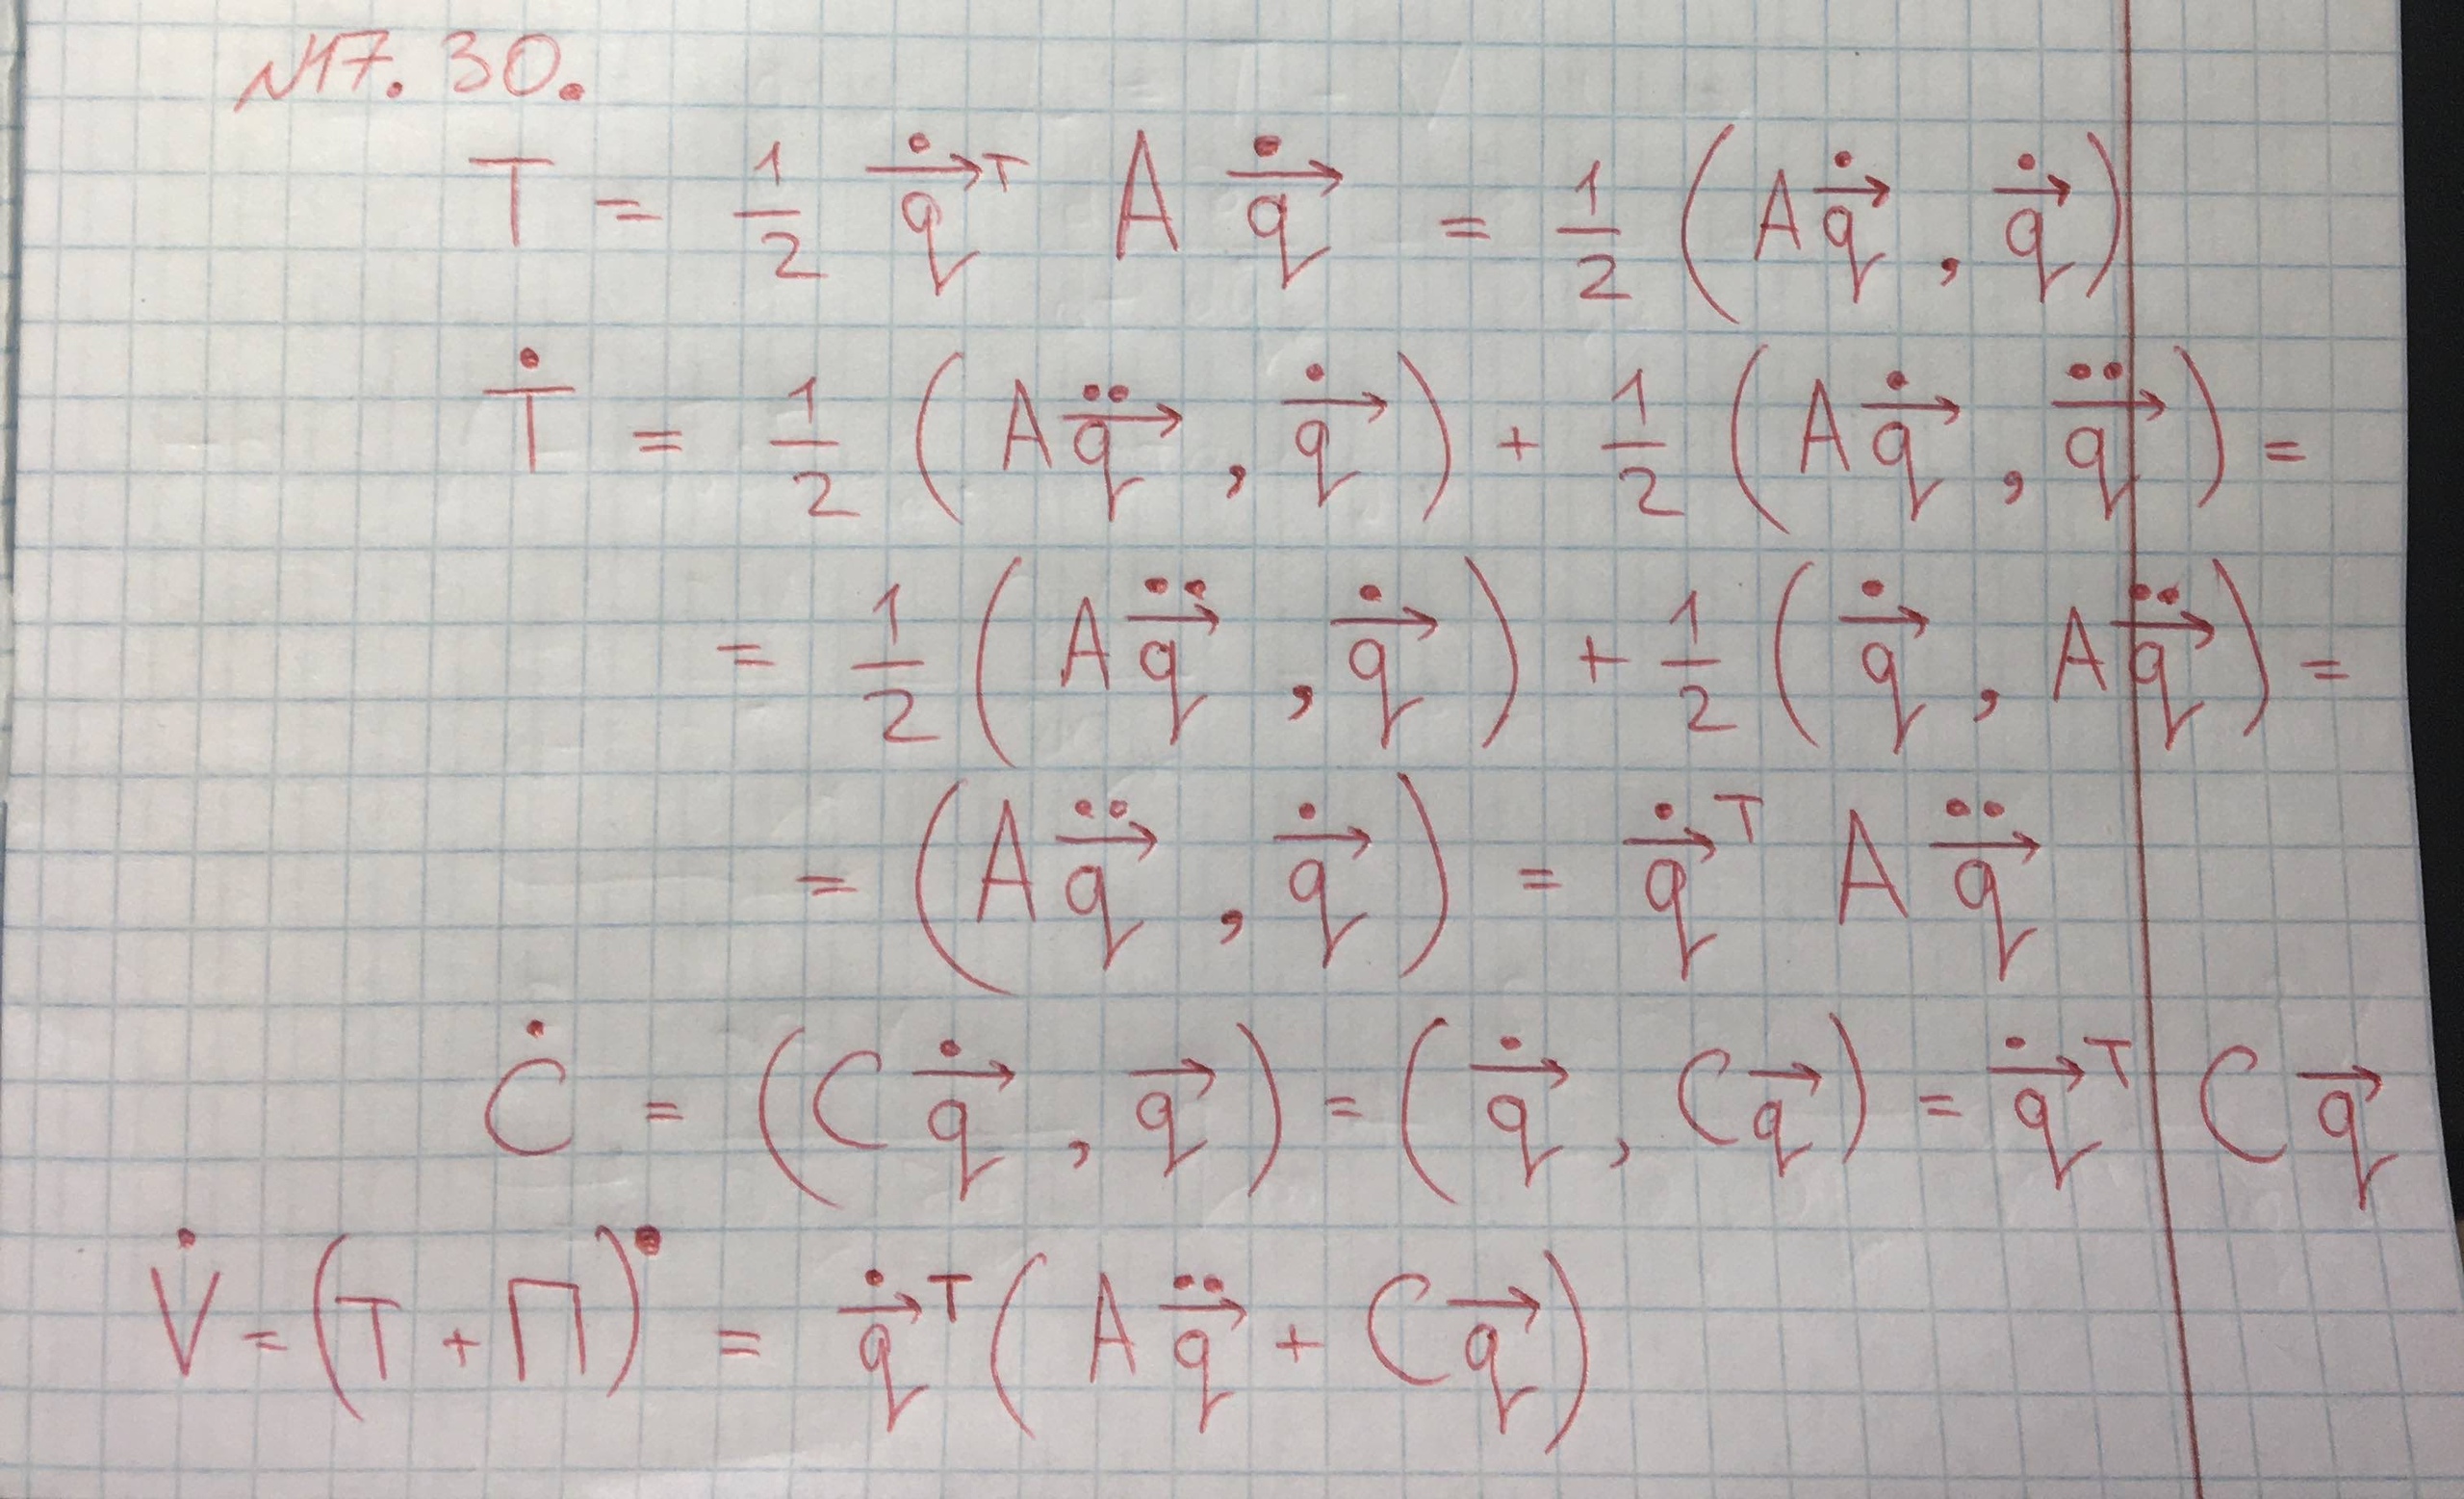 №17.30.
T = 1/2 q̇⃗ᵀ A q̇⃗ = 1/2 (A q̇⃗, q̇⃗)
Ṫ = 1/2 (A q̈⃗, q̇⃗) + 1/2 (A q̇⃗, q̈⃗) =
= 1/2 (A q̈⃗, q̇⃗) + 1/2 (q̇⃗, A q̈⃗) =
= (A q̈⃗, q̇⃗) = q̇⃗ᵀ A q̈⃗
Ċ = (C q̇⃗, q⃗) = (q̇⃗, C q⃗) = q̇⃗ᵀ C q⃗
V̇ = (T + П)˙ = q̇⃗ᵀ (A q̈⃗ + C q⃗)